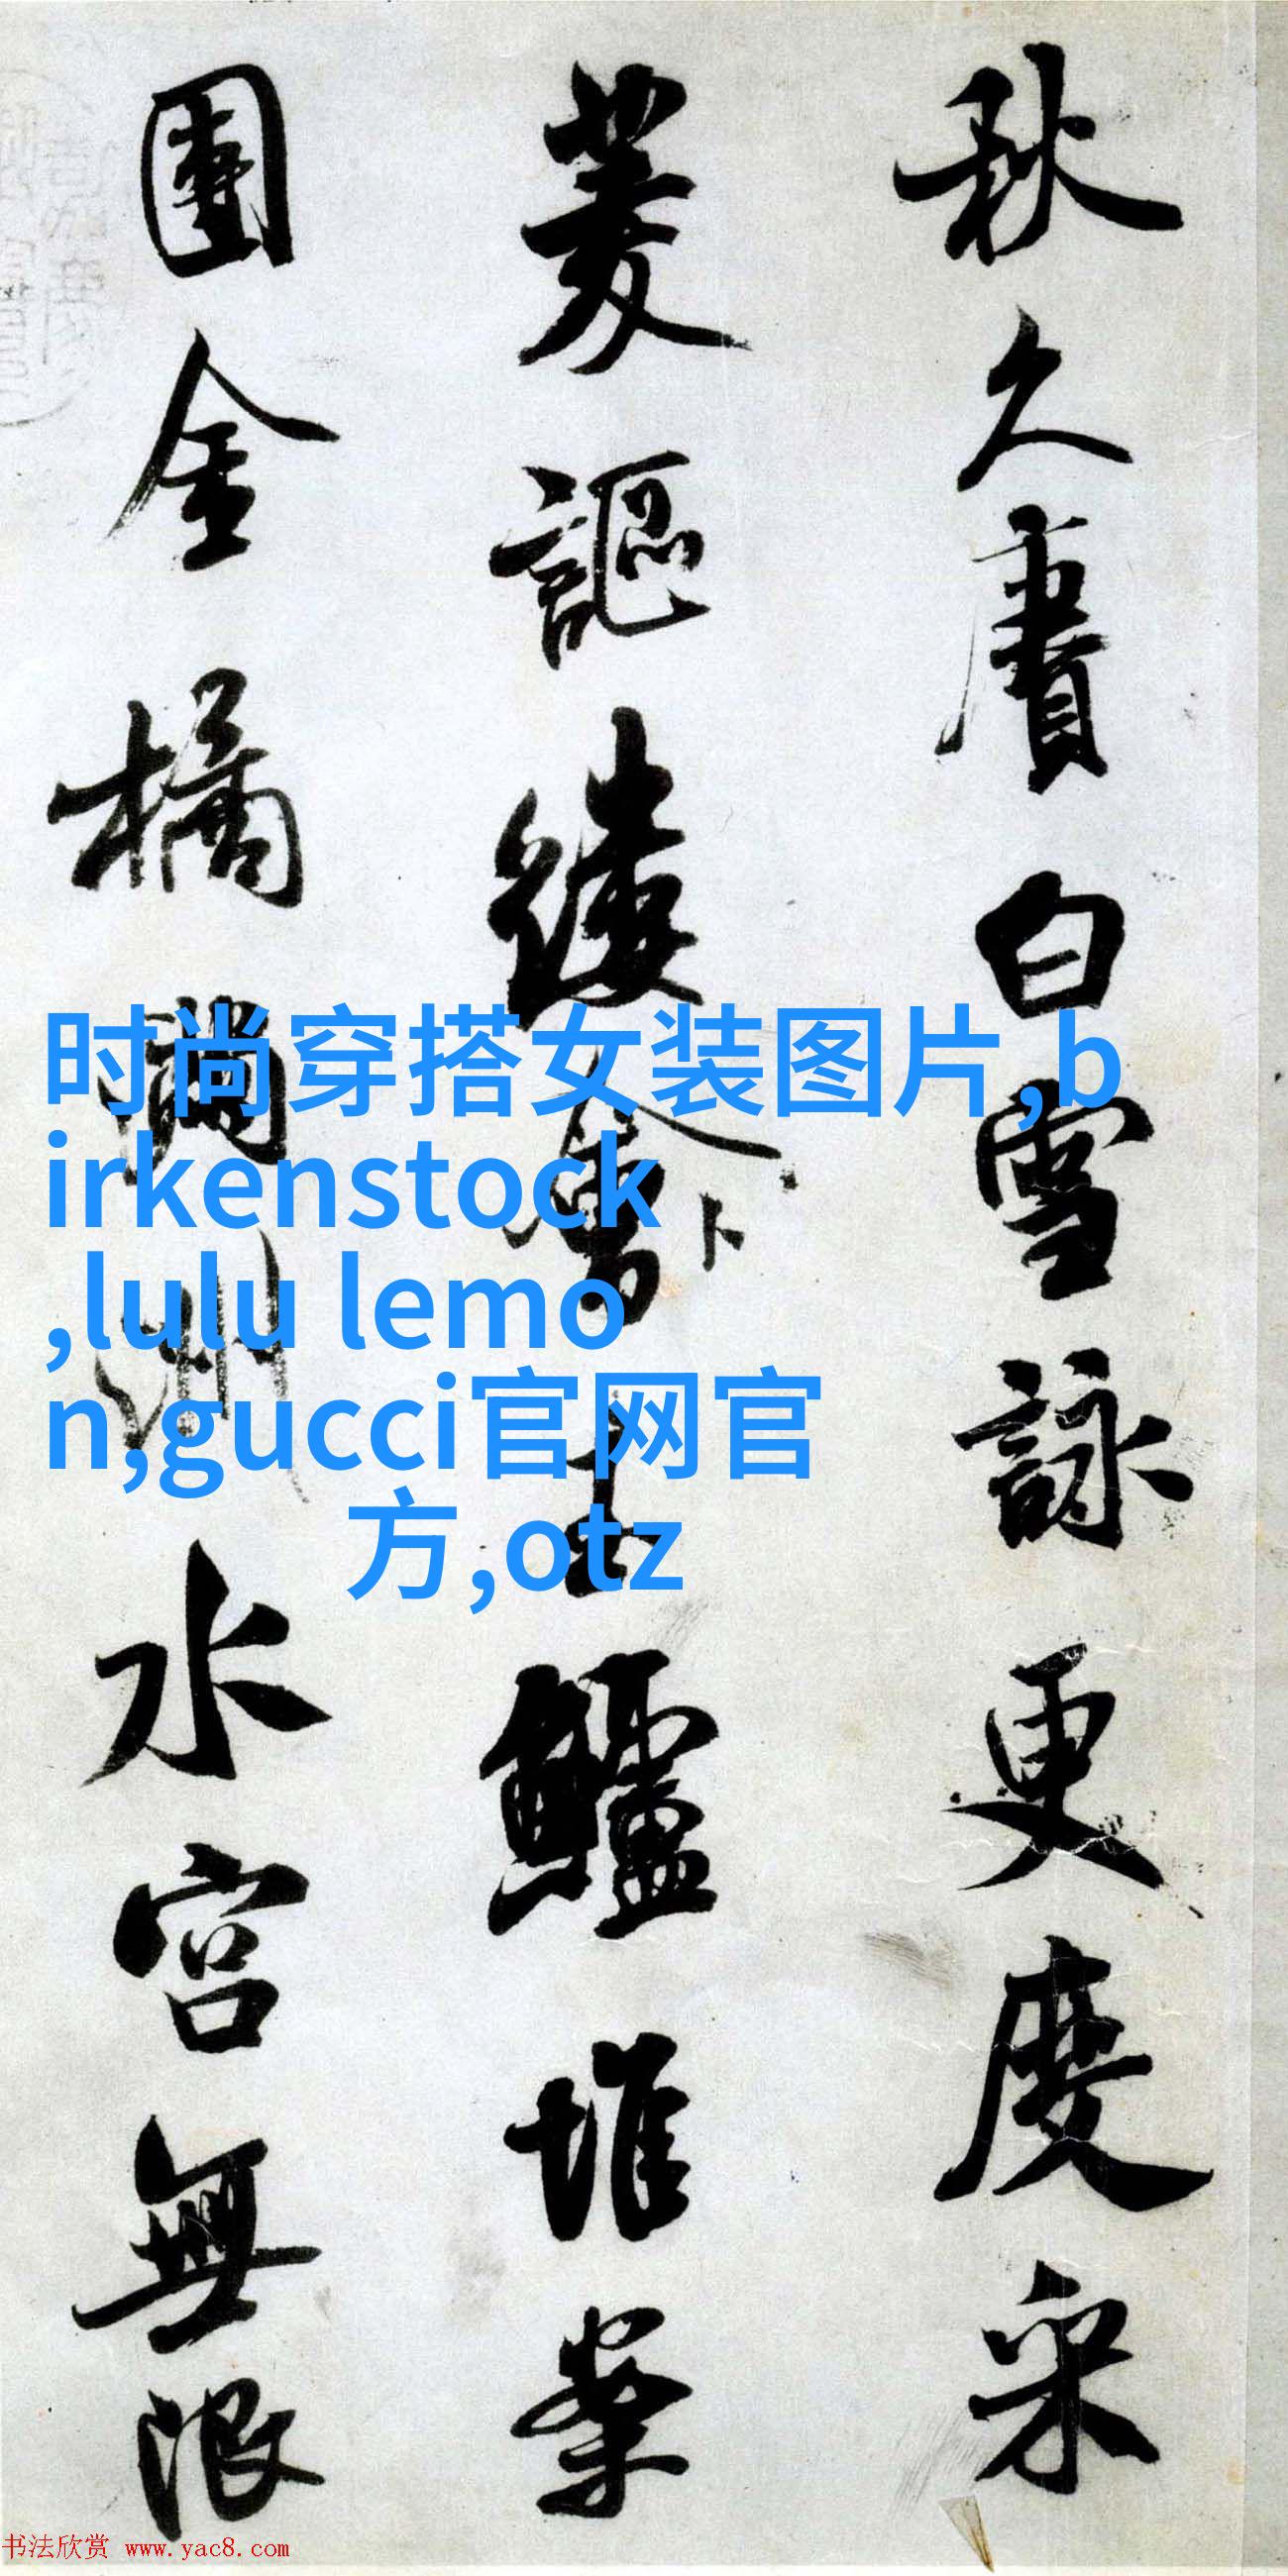 秋久賡白雪詠更度采
菱謳縷會卜玉鱸堆案
團金橘滿洲水宮無限
时尚穿搭女装图片,b
irkenstock
,lulu lemo
n,gucci官网官
方,otz
书法欣赏 www.yac8.com